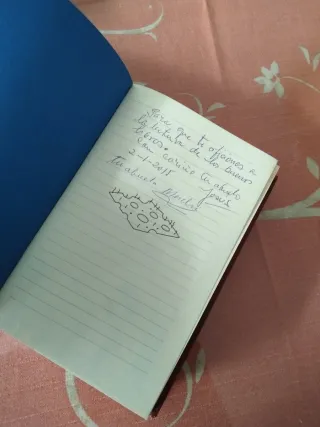 Para que te aficiones a
la lectura de los buenos
libros. cariño tu abuelo
con Jesus
2-1-2015
tu abuela